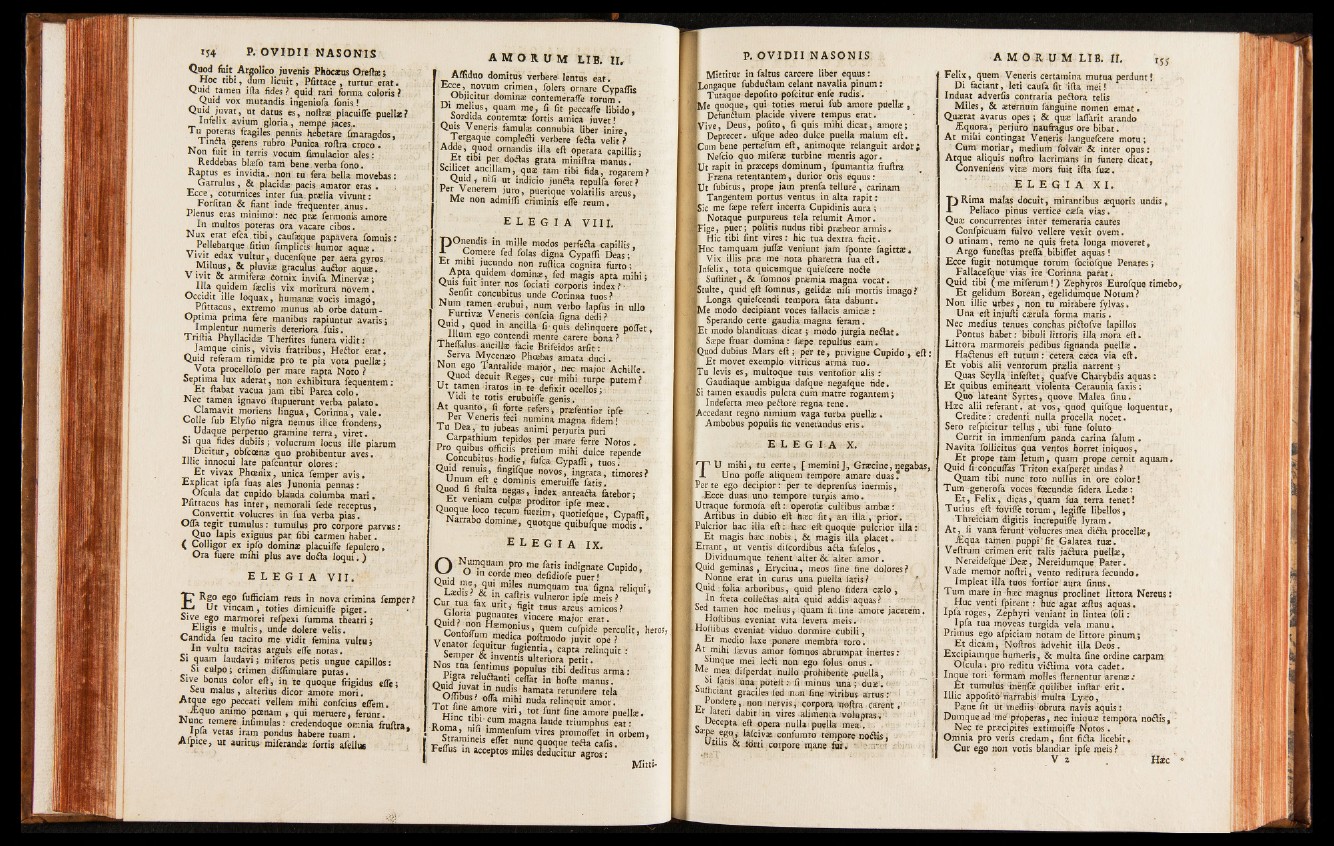 154 P. OVIDII NASONIS
Quod fuit Argolico juvenis Phocæus Oreſtæ;
Hoc tibi, dum licuit, Pſittace, turtur erat.
Quid tamen iſta fides? quid rari forma coloris?
Quid vox mutandis ingenioſa ſonis!
Quid juvat, ut datus es, noſtræ placuiſſe puellæ?
Infelix avium gloria, nempe jaces.
Tu poteras fragiles pennis hebetare ſmaragdos,
Tincta gerens rubro Punica roſtra croco.
Non fuit in terris vocum ſimulacior ales:
Reddebas blæſo tam bene verba ſono.
Raptus es invidia. non tu fera bella movebas:
Garrulus, & placidæ pacis amator eras.
Ecce, coturnices inter ſua prælia vivunt:
Forſitan & fiant inde frequenter anus.
Plenus eras minimo: nec præ ſermonis amore
In multos poteras ora vacare cibos.
Nux erat eſca tibi, cauſæque papavera ſomnis:
Pellebatque ſitim ſimplicis humor aquæ.
Vivit edax vultur, ducenſque per aera gyros
Milvus, & pluviæ graculus auctor aquæ.
Vivit & armiferæ cornix inviſa Minervæ;
Illa quidem ſæclis vix moritura novem.
Occidit ille loquax, humanæ vocis imago,
Pſittacus, extremo munus ab orbe datum.
Optima prima fere manibus rapiuntur avaris;
Implentur numeris deteriora ſuis.
Triſtia Phyllacidæ Therſites funera vidit:
Jamque cinis, vivis fratribus, Hector erat.
Quid referam timidæ pro te pia vota puellæ;
Vota procelloſo per mare rapta Noto?
Septima lux aderat, non exhibitura ſequentem:
Et ſtabat vacua jam tibi Parca colo.
Nec tamen ignavo ſtupuerunt verba palato.
Clamavit moriens lingua, Corinna, vale.
Colle ſub Elyſio nigra nemus ilice frondens,
Udaque perpetuo gramine terra, viret.
Si qua fides dubiis; volucrum locus ille piarum
Dicitur, obſcœnæ quo prohibentur aves.
Illic innocui late paſcuntur olores:
Et vivax Phœnix, unica ſemper avis.
Explicat ipſa ſuas ales Junonia pennas:
Oſcula dat cupido blanda columba mari.
Pſittacus has inter, nemorali ſede receptus,
Convertit volucres in ſua verba pias.
Oſſa tegit tumulus: tumulus pro corpore parvus:
Quo lapis exiguus par ſibi carmen habet.
( Colligor ex ipſo dominæ placuiſſe ſepulcro.
Ora fuere mihi plus ave docta loqui. )
ELEGIA VII.
ERgo ego ſufficiam reus in nova crimina ſemper?
Ut vincam, toties dimicuiſſe piget.
Sive ego marmorei reſpexi ſumma theatri;
Eligis e multis, unde dolere velis.
Candida ſeu tacito me vidit femina vultu;
In vultu tacitas arguis eſſe notas.
Si quam laudavi; miſeros petis ungue capillos:
Si culpo; crimen diſſimulare putas.
Sive bonus color eſt, in te quoque frigidus eſſe;
Seu malus, alterius dicor amore mori.
Atque ego peccati vellem mihi conſcius eſſem.
Æquo animo pœnam, qui meruere, ferunt.
Nunc temere inſimulas: credendoque omnia fruſtra,
Ipſa vetas iram pondus habere tuam.
Aſpice, ut auritus miſerandæ ſortis aſellus
AMORUM LIB. II.
Aſſiduo domitus verbere lentus eat.
Ecce, novum crimen, ſolers ornare Cypaſſis
Objicitur dominæ contemeraſſe torum.
Di melius, quam me, ſi ſit peccaſſe libido,
Sordida contemtæ ſortis amica juvet!
Quis Veneris famulæ connubia liber inire,
Tergaque complecti verbere ſecta velit?
Adde, quod ornandis illa eſt operata capillis;
Et tibi per doctas grata miniſtra manus.
Scilicet ancillam, quæ tam tibi fida, rogarem?
Quid, niſi ut indicio juncta repulſa foret?
Per Venerem juro, puerique volatilis arcus,
Me non admiſſi criminis eſſe reum.
ELEGIA VIII.
POnendis in mille modos perfecta capillis,
Comere ſed ſolas digna Cypaſſi Deas;
Et mihi jucundo non ruſtica cognita furto;
Apta quidem dominæ, ſed magis apta mihi;
Quis fuit inter nos ſociati corporis index?
Senſit concubitus unde Corinna tuos?
Num tamen erubui, num verbo lapſus in ullo
Furtivæ Veneris conſcia ſigna dedi?
Quid, quod in ancilla ſi quis delinquere poſſet,
Illum ego contendi mente carere bona?
Theſſalus ancillæ facie Briſeidos arſit:
Serva Mycenæo Phœbas amata duci.
Non ego Tantalide major, nec major Achille.
Quod decuit Reges, cur mihi turpe putem?
Ut tamen iratos in te defixit ocellos;
Vidi te totis erubuiſſe genis.
At quanto, ſi forte refers, præſentior ipſe
Per Veneris feci numina magna fidem!
Tu Dea, tu jubeas animi perjuria puri
Carpathium tepidos per mare ferre Notos.
Pro quibus officiis pretium mihi dulce repende
Concubitus hodie, fuſca Cypaſſi, tuos.
Quid renuis, fingiſque novos, ingrata, timores?
Unum eſt e dominis emeruiſſe ſatis.
Quod ſi ſtulta negas, index anteacta fatebor;
Et veniam culpæ proditor ipſe meæ.
Quoque loco tecum fuerim, quotieſque, Cypaſſi,
Narrabo dominæ, quotque quibuſque modis.
ELEGIA IX.
O Numquam pro me ſatis indignate Cupido,
O in corde meo deſidioſe puer!
Quid me, qui miles numquam tua ſigna reliqui,
Lædis? & in caſtris vulneror ipſe meis?
Cur tua fax urit, figit tuus arcus amicos?
Gloria pugnantes vincere major erat.
Quid? non Hæmonius, quem cuſpide perculit, heros,
Confoſſum medica poſtmodo juvit ope?
Venator ſequitur fugientia, capta relinquit:
Semper & inventis ulteriora petit.
Nos tua ſentimus populus tibi deditus arma:
Pigra reluctanti ceſſat in hoſte manus.
Quid juvat in nudis hamata retundere tela
Oſſibus? oſſa mihi nuda relinquit amor.
Tot ſine amore viri, tot ſunt ſine amore puellæ.
Hinc tibi cum magna laude triumphus eat:
Roma, niſi immenſum vires promoſſet in orbem,
Stramineis eſſet nunc quoque tecta caſis.
Feſſus in acceptos miles deducitur agros:
Mitti-
P. OVIDII NASONIS
Mittitur in ſaltus carcere liber equus:
Longaque ſubductam celant navalia pinum:
Tutaque depoſito poſcitur enſe rudis.
Me quoque, qui toties merui ſub amore puellæ,
Defunctum placide vivere tempus erat.
Vive, Deus, poſito, ſi quis mihi dicat, amore;
Deprecer. uſque adeo dulce puella malum eſt.
Cum bene pertæſum eſt, animoque relanguit ardor;
Neſcio quo miſeræ turbine mentis agor.
Ut rapit in præceps dominum, ſpumantia fruſtra
Fræna retentantem, durior oris equus:
Ut ſubitus, prope jam prenſa tellure, carinam
Tangentem portus ventus in alta rapit:
Sic me ſæpe refert incerta Cupidinis aura;
Notaque purpureus tela reſumit Amor.
Fige, puer; poſitis nudus tibi præbeor armis.
Hic tibi ſint vires: hic tua dextra facit.
Huc tamquam juſſæ veniunt jam ſponte ſagittæ.
Vix illis præ me nota pharetra ſua eſt.
Infelix, tota quicumque quieſcere nocte
Suſtinet, & ſomnos præmia magna vocat.
Stulte, quid eſt ſomnus, gelidæ niſi mortis imago?
Longa quieſcendi tempora fata dabunt.
Me modo decipiant voces fallacis amicæ:
Sperando certe gaudia magna feram.
Et modo blanditias dicat; modo jurgia nectat.
Sæpe fruar domina: ſæpe repulſus eam.
Quod dubius Mars eſt; per te, privigne Cupido, eſt:
Et movet exemplo vitricus arma tuo.
Tu levis es, multoque tuis ventoſior alis:
Gaudiaque ambigua daſque negaſque fide.
Si tamen exaudis pulcra cum matre rogantem;
Indeſerta meo pectore regna tene.
Accedant regno nimium vaga turba puellæ.
Ambobus populis ſic venerandus eris.
ELEGIA X.
TU mihi, tu certe, [memini], Græcine, negabas,
Uno poſſe aliquem tempore amare duas.
Per te ego decipior: per te deprenſus inermis,
Ecce duas uno tempore turpis amo.
Utraque formoſa eſt: operoſæ cultibus ambæ:
Artibus in dubio eſt hæc ſit, an illa, prior.
Pulcrior hac illa eſt: hæc eſt quoque pulcrior illa:
Et magis hæc nobis, & magis illa placet.
Errant, ut ventis diſcordibus acta faſelos,
Dividuumque tenent alter & alter amor.
Quid geminas, Erycina, meos ſine fine dolores?
Nonne erat in curas una puella ſatis?
Quid folia arboribus, quid pleno ſidera cælo,
In freta collectas alta quid addis aquas?
Sed tamen hoc melius, quam ſi ſine amore jacerem.
Hoſtibus eveniat vita ſevera meis.
Hoſtibus eveniat viduo dormire cubili,
Et medio laxe ponere membra toro.
At mihi ſævus amor ſomnos abrumpat inertes:
Simque mei lecti non ego ſolus onus.
Me mea diſperdat nullo prohibente puella,
Si ſatis una poteſt: ſi minus una; duæ.
Sufficiunt graciles ſed non ſine viribus artus:
Pondere, non nervis, corpora noſtra carent.
Et lateri dabit in vires alimenta voluptas.
Decepta eſt opera nulla puella mea.
Sæpe ego, laſcivæ conſumto tempore noctis,
Utilis & forti corpore mane fui.
AMORUM LIB. II. 155
Felix, quem Veneris certamina mutua perdunt!
Di faciant, leti cauſa ſit iſta mei!
Induat adverſis contraria pectora telis
Miles, & æternum ſanguine nomen emat.
Quærat avarus opes; & quæ laſſarit arando
Æquora, perjuro naufragus ore bibat.
At mihi contingat Veneris langueſcere motu;
Cum moriar, medium ſolvar & inter opus:
Atque aliquis noſtro lacrimans in funere dicat,
Conveniens vitæ mors fuit iſta ſuæ.
ELEGIA XI.
PRima malas docuit, mirantibus æquoris undis,
Peliaco pinus vertice cæſa vias.
Quæ concurrentes inter temeraria cautes
Conſpicuam fulvo vellere vexit ovem.
O utinam, remo ne quis freta longa moveret,
Argo funeſtas preſſa bibiſſet aquas!
Ecce fugit notumque torum ſocioſque Penates;
Fallaceſque vias ire Corinna parat.
Quid tibi (me miſerum!) Zephyros Euroſque timebo,
Et gelidum Borean, egelidumque Notum?
Non illic urbes, non tu mirabere ſylvas.
Una eſt injuſti cærula forma maris.
Nec medius tenues conchas pictoſve lapillos
Pontus habet: bibuli littoris illa mora eſt.
Littora marmoreis pedibus ſignanda puellæ.
Hactenus eſt tutum: cetera cæca via eſt.
Et vobis alii ventorum prælia narrent;
Quas Scylla infeſtet, quaſve Charybdis aquas:
Et quibus emineant violenta Ceraunia ſaxis:
Quo lateant Syrtes, quove Malea ſinu.
Hæc alii referant. at vos, quod quiſque loquentur,
Credite: credenti nulla procella nocet.
Sero reſpicitur tellus, ubi fune ſoluto
Currit in immenſum panda carina ſalum.
Navita ſollicitus qua ventos horret iniquos,
Et prope tam letum, quam prope cernit aquam.
Quid ſi concuſſas Triton exaſperet undas?
Quam tibi nunc toto nullus in ore color!
Tum generoſa voces fœcundæ ſidera Ledæ:
Et, Felix, dicas, quam ſua terra tenet!
Tutius eſt foviſſe torum, legiſſe libellos,
Threiciam digitis increpuiſſe lyram.
At, ſi vana ferunt volucres mea dicta procellæ,
Æqua tamen puppi ſit Galatea tuæ.
Veſtrum crimen erit talis jactura puellæ,
Nereideſque Deæ, Nereidumque Pater.
Vade memor noſtri, vento reditura ſecundo.
Impleat illa tuos fortior aura ſinus.
Tum mare in hæc magnus proclinet littora Nereus:
Huc venti ſpirent: huc agat æſtus aquas.
Ipſa roges, Zephyri veniant in lintea ſoli:
Ipſa tua moveas turgida vela manu.
Primus ego aſpiciam notam de littore pinum;
Et dicam, Noſtros advehit illa Deos.
Excipiamque humeris, & multa ſine ordine carpam
Oſcula. pro reditu victima vota cadet.
Inque tori formam molles ſternentur arenæ:
Et tumulus menſæ quilibet inſtar erit.
Illic appoſito narrabis multa Lyæo,
Pæne ſit ut mediis obruta navis aquis:
Dumque ad me properas, nec iniquæ tempora noctis,
Nec te præcipites extimuiſſe Notos.
Omnia pro veris credam, ſint ficta licebit.
Cur ego non votis blandiar ipſe meis?
V 2 Hæc